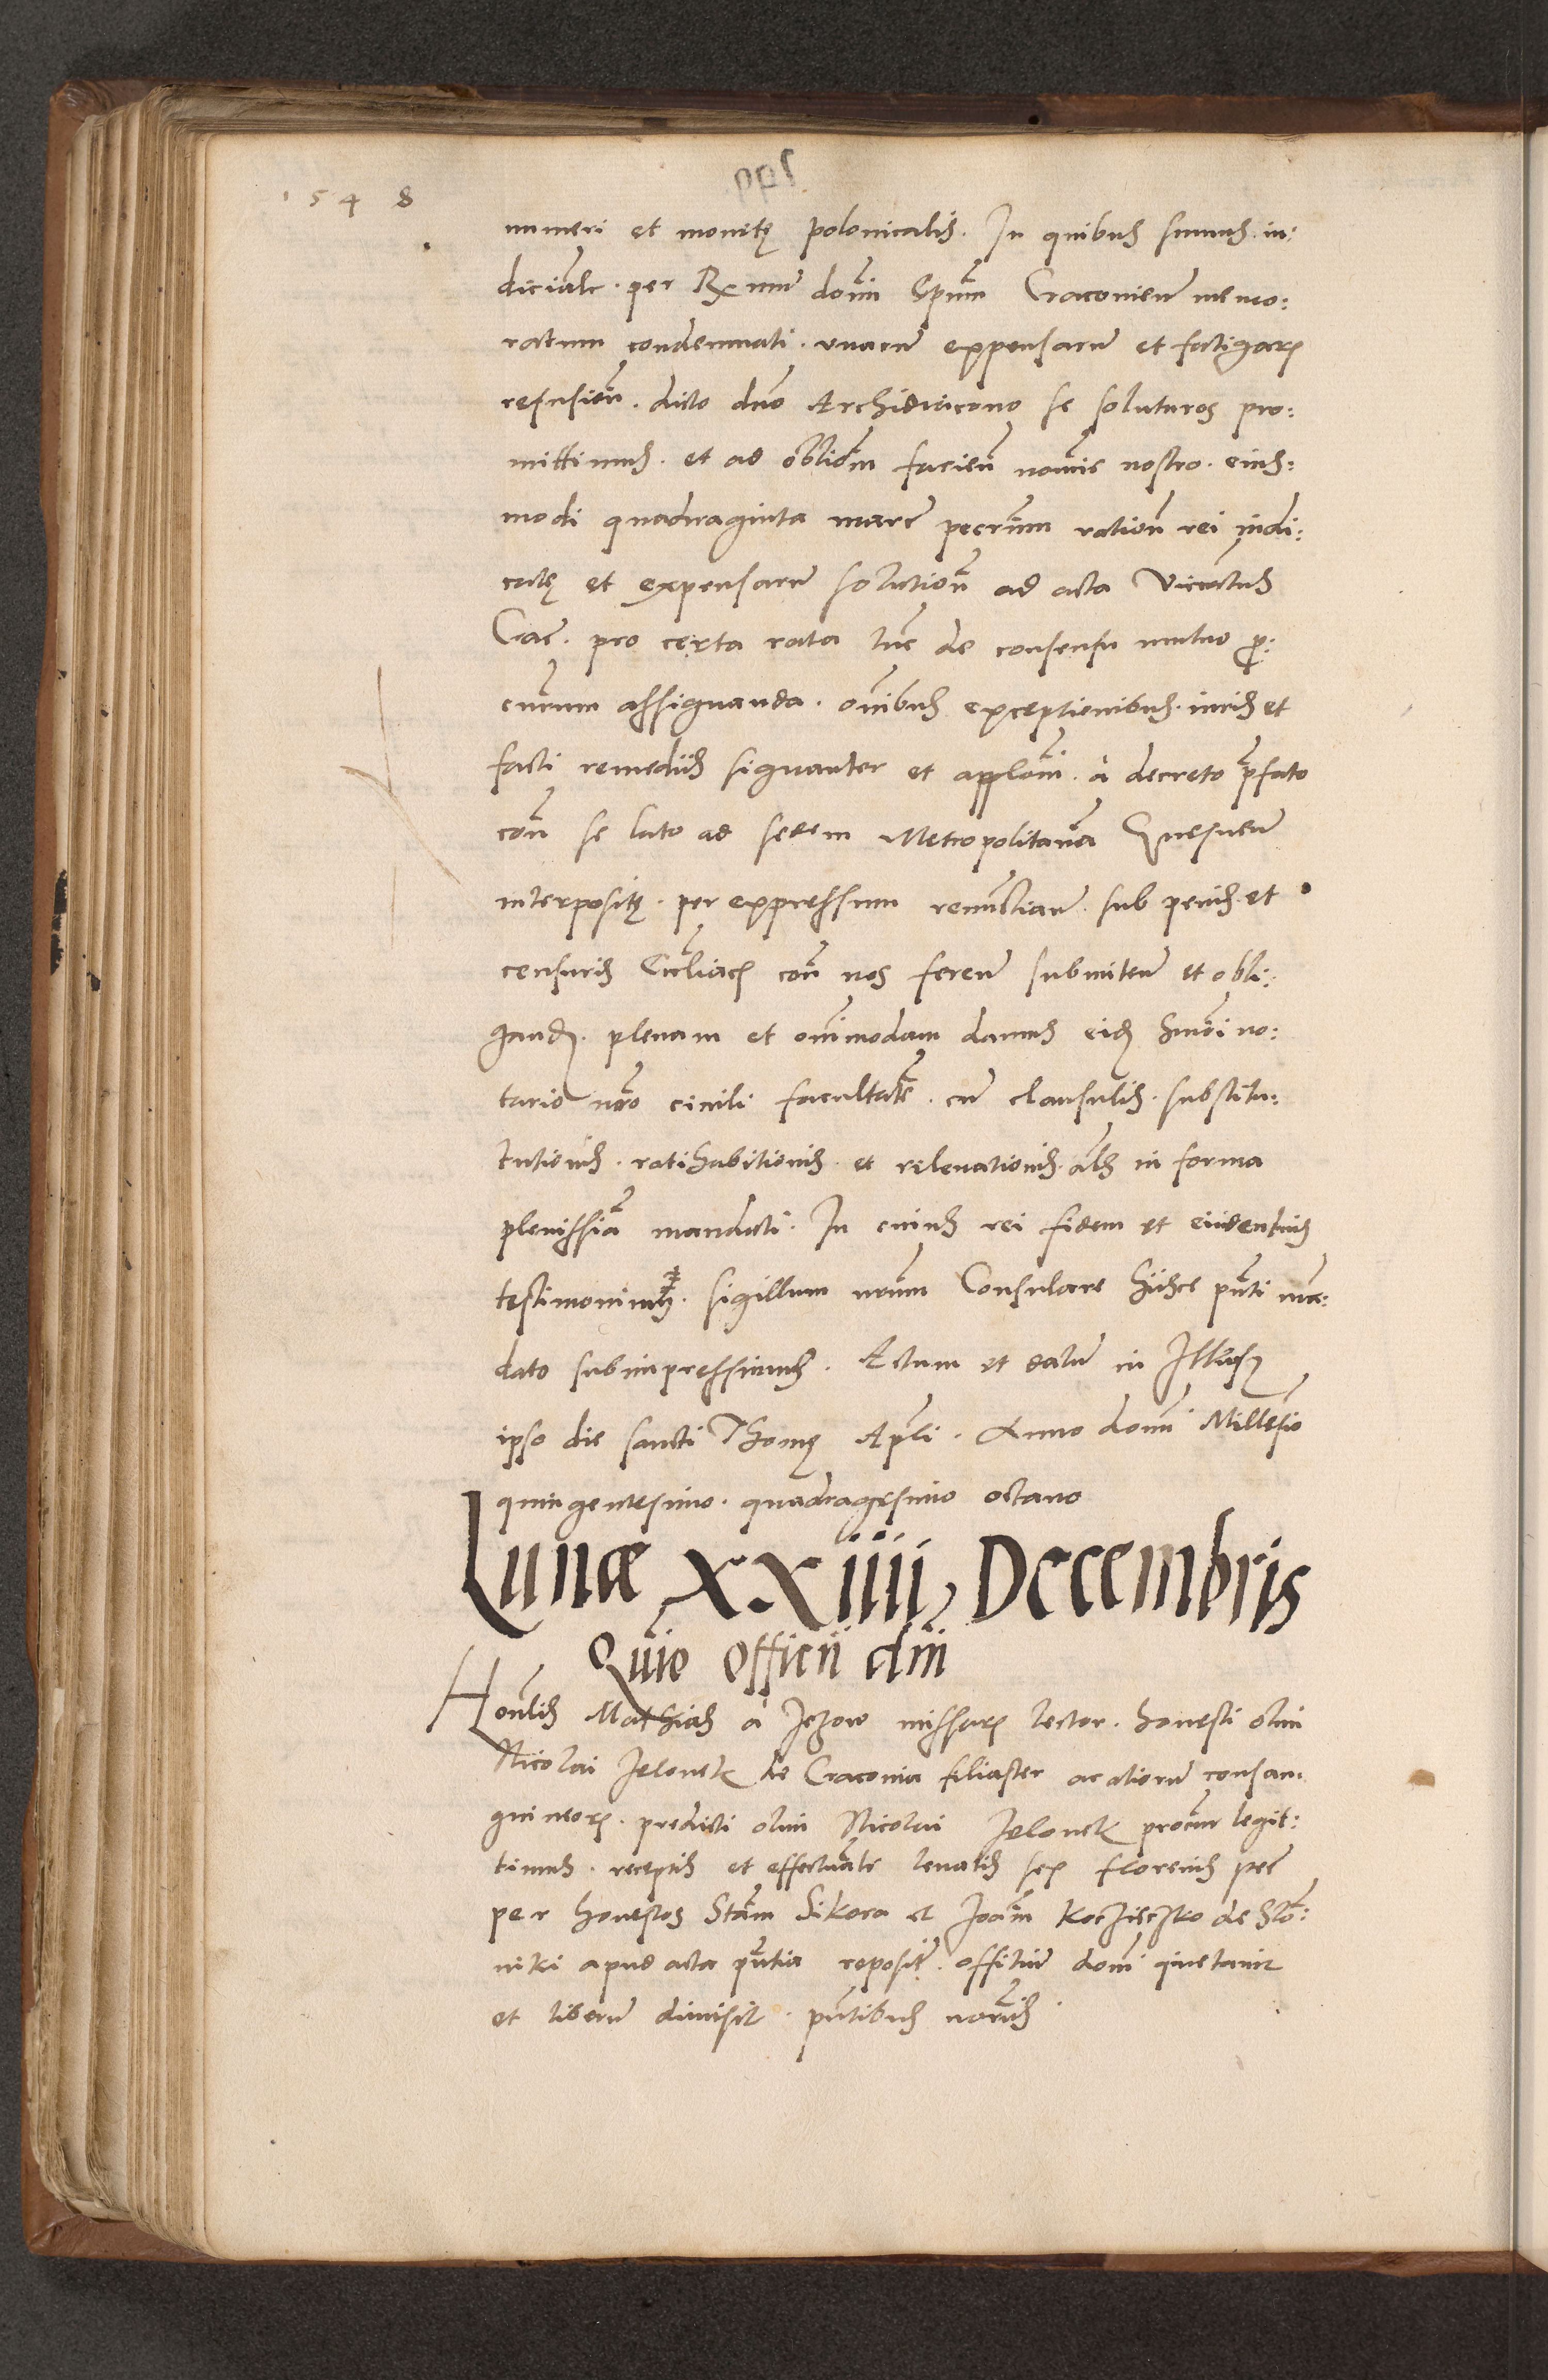 1548
numeri et monetę polonicalis. In quibus sumus iu:
dicialr. per Rx mum domi Epum Cracovien memo:
ratum condemnati. unacu expensaru et fatigarum
refusion. dicto dno Archidiacono se soluturos pro:
mittimus. et ad obliom facien nomie nostro. eius:
modi quadraginta marc pecrium ration rei iudi:
catę et expensaru solution ad acta Vicatus
Crac. pro certa rata tuc de consensu mutuo p:
curum assignanda. omibus exceptionibus. iuris et
facti remediis signanter et applomi. à decreto pfato
con se lato ad sedem Metropolitana Gnesnen
interpositę. per expressum renuctian. sub penis et
censuris Ecclliacis con nos feren submitten et obli:
gandi. plenam et omimodam damus eidem Simoi no:
tario nro civili facultate. cu clausulis. substitu:
tutionis. ratihabitionis. et relevationis als in forma
plenissia mandati. In cuius rei fidem et evidentius
testimonium. sigillum nrum Consulare hiisce pnti ma:
dato subimpressimus. Actum et datu in Ilkusch
ipso die sancti Thomę Apli. Anno domi Millesio
quingentesimo. quadragesimo octavo
Lunæ XXiiii Decembris
Quie officii dni
Honlis Mathias à Jezow missarum lector. honesti olim
Nicolai Jelonek de Cracovia filiaster ac alioru consan
guineorum. predicti olim Nicolai Jelonek procur legit:
timus. receptis et effectualr levatis sex florenis pec
per honestos Stam Sikora et Joam Koczieczko de Slo:
niki apud acta pntia reposit. offitiu domi quetavit
et liberu dimisit. pntibus noriis